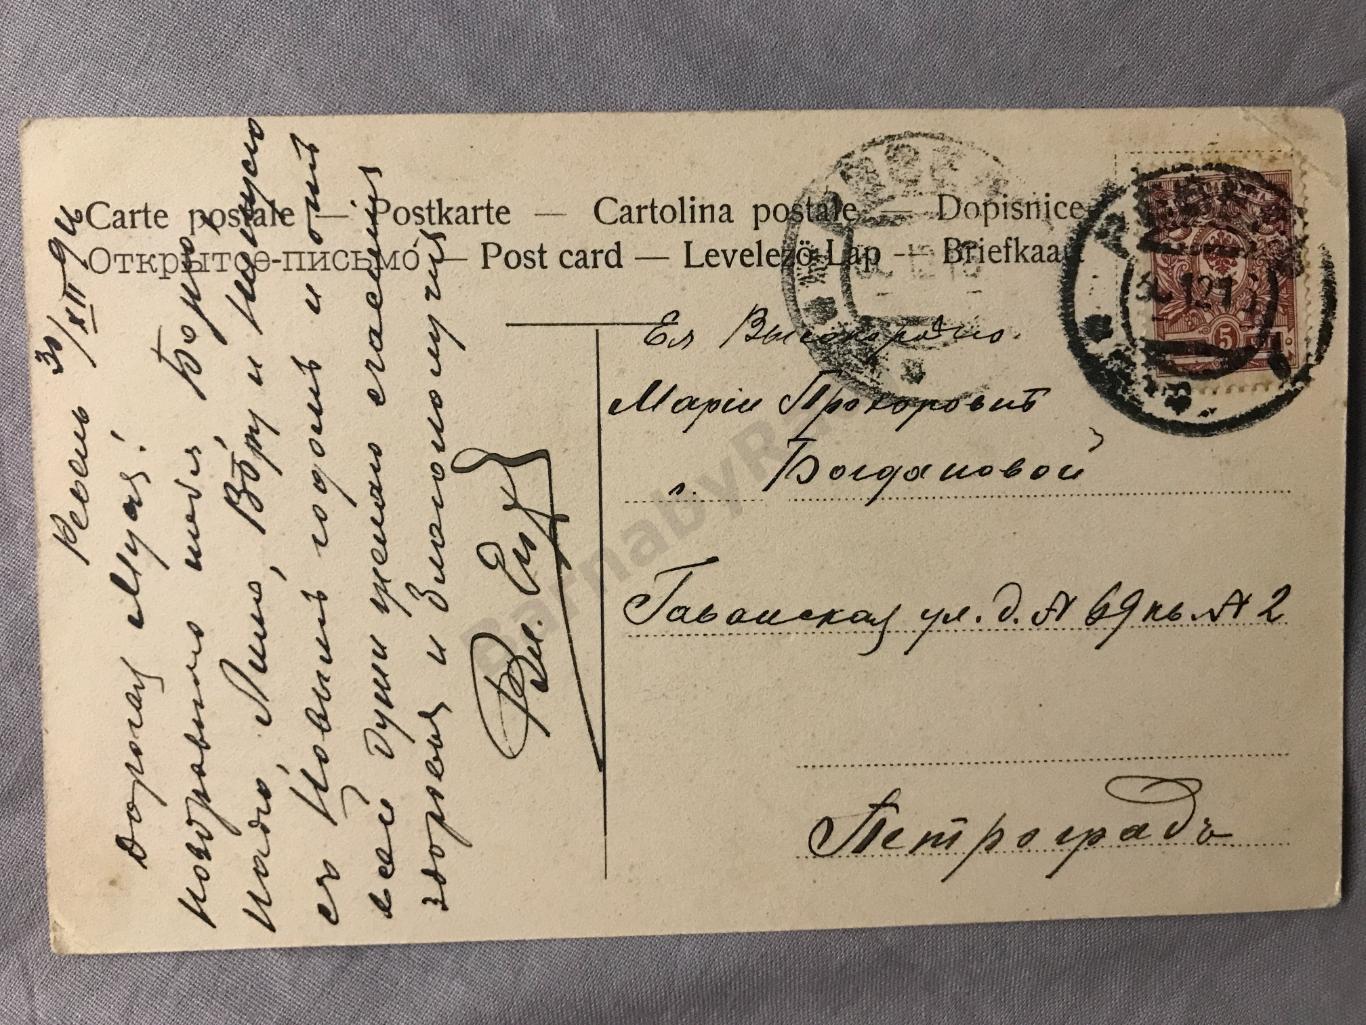 Carte postale — Postkarte — Cartolina postale — Dopisnice
Открытое-письмо — Post card — Levelező-Lap — Briefkaart
Ревель 30/XII 9
Дорогая Муся!
поздравляю тебя, Борю,
Надю, Лилю, Вѣру и
съ Новымъ годомъ и отъ
всей души желаю счастья
здоровья и благополучія
Вл.
Ея Высокородію
Маріи Прокоровнѣ
Богдановой
Гаванская ул. д. № 69 кв. № 2
Петроградъ
5
BarnabyR